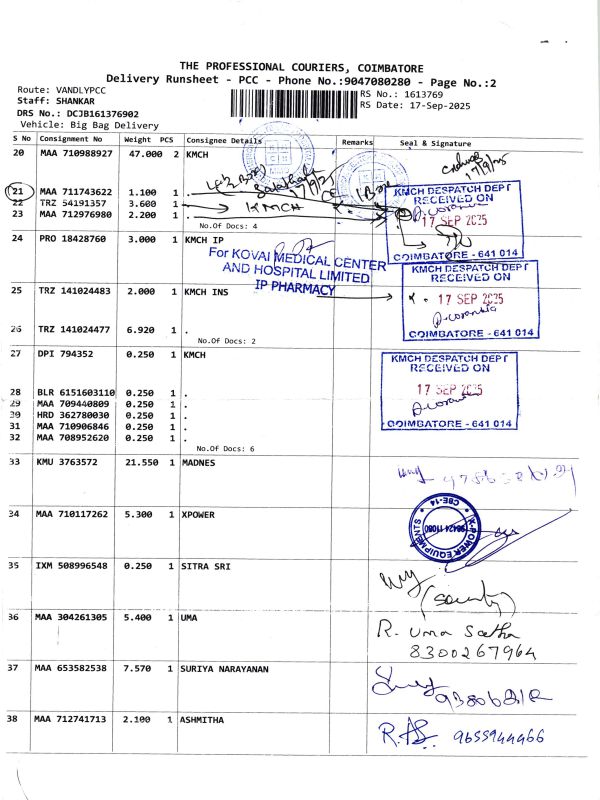 THE PROFESSIONAL COURIERS, COIMBATORE
Delivery Runsheet - PCC - Phone No.:9047080280 - Page No.:2
Route: VANDLYPCC
RS No.: 1613769
Staff: SHANKAR
RS Date: 17-Sep-2025
DRS No.: DCJB161376902
Vehicle: Big Bag Delivery
S No Consignment No Weight PCS Consignee Details Remarks Seal & Signature
20 MAA 710988927 47.000 2 KMCH
21 MAA 711743622 1.100 1 .
22 TRZ 54191357 3.600 1 KMCH
23 MAA 712976980 2.200 1 .
No.Of Docs: 4
KMCH DESPATCH DEPT
RECEIVED ON
17 SEP 2025
COIMBATORE - 641 014
24 PRO 18428760 3.000 1 KMCH IP
For KOVAI MEDICAL CENTER
AND HOSPITAL LIMITED
IP PHARMACY
KMCH DESPATCH DEPT
RECEIVED ON
17 SEP 2025
COIMBATORE - 641 014
25 TRZ 141024483 2.000 1 KMCH INS
26 TRZ 141024477 6.920 1 .
No.Of Docs: 2
27 DPI 794352 0.250 1 KMCH
KMCH DESPATCH DEPT
RECEIVED ON
17 SEP 2025
COIMBATORE - 641 014
28 BLR 6151603110 0.250 1 .
29 MAA 709440809 0.250 1 .
30 HRD 362780030 0.250 1 .
31 MAA 710906846 0.250 1 .
32 MAA 708952620 0.250 1 .
No.Of Docs: 6
33 KMU 3763572 21.550 1 MADNES
34 MAA 710117262 5.300 1 XPOWER
K-POWER EQUIPMENTS
CBE-14
35 IXM 508996548 0.250 1 SITRA SRI
(security)
36 MAA 304261305 5.400 1 UMA
R. Uma Satha
8300267964
37 MAA 653582538 7.570 1 SURIYA NARAYANAN
38 MAA 712741713 2.100 1 ASHMITHA
9655944466